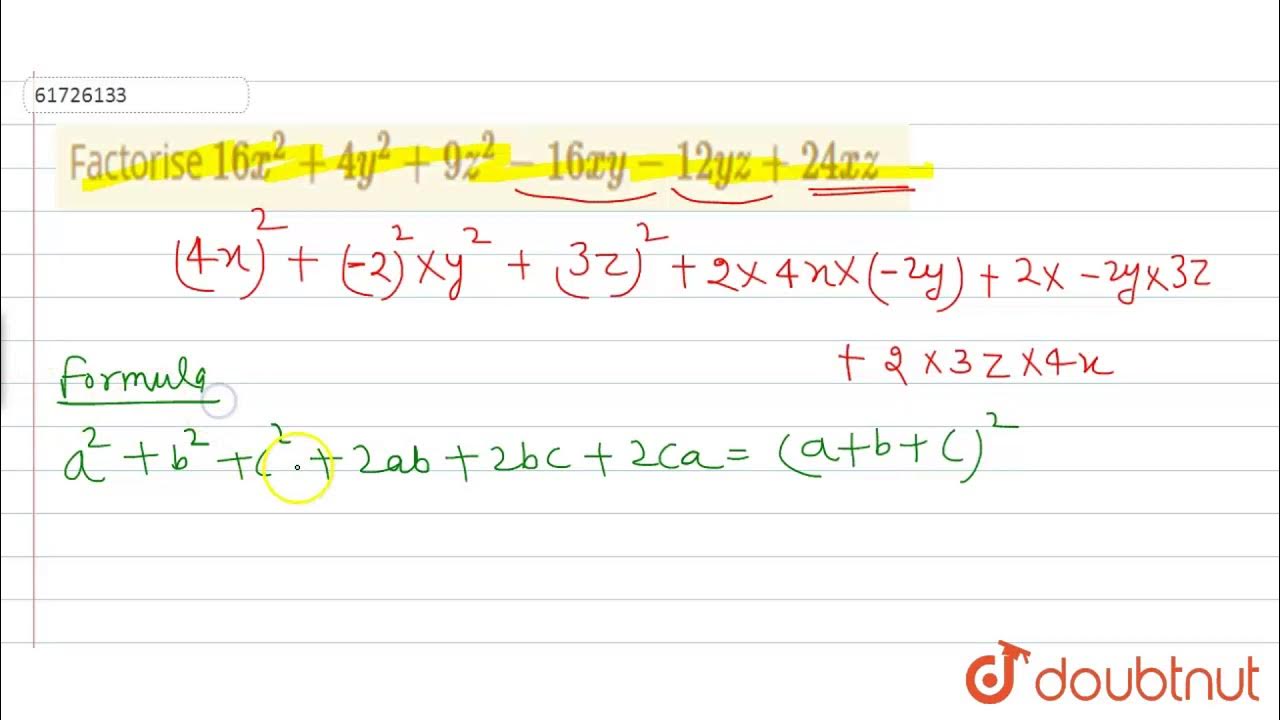 61726133
Factorise 16x² + 4y² + 9z² − 16xy − 12yz + 24xz
(4x)² + (-2)² × y² + (3z)² + 2 × 4x × (-2y) + 2 × -2y × 3z
+ 2 × 3z × 4x
Formula
a² + b² + c² + 2ab + 2bc + 2ca = (a+b+c)²
doubtnut